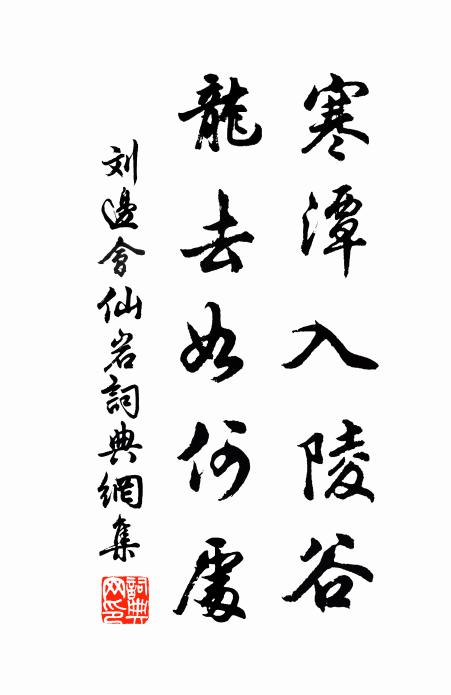 寒潭入陵谷
龍去知何處
刘邊會仙岩詞典網集
詞典网印